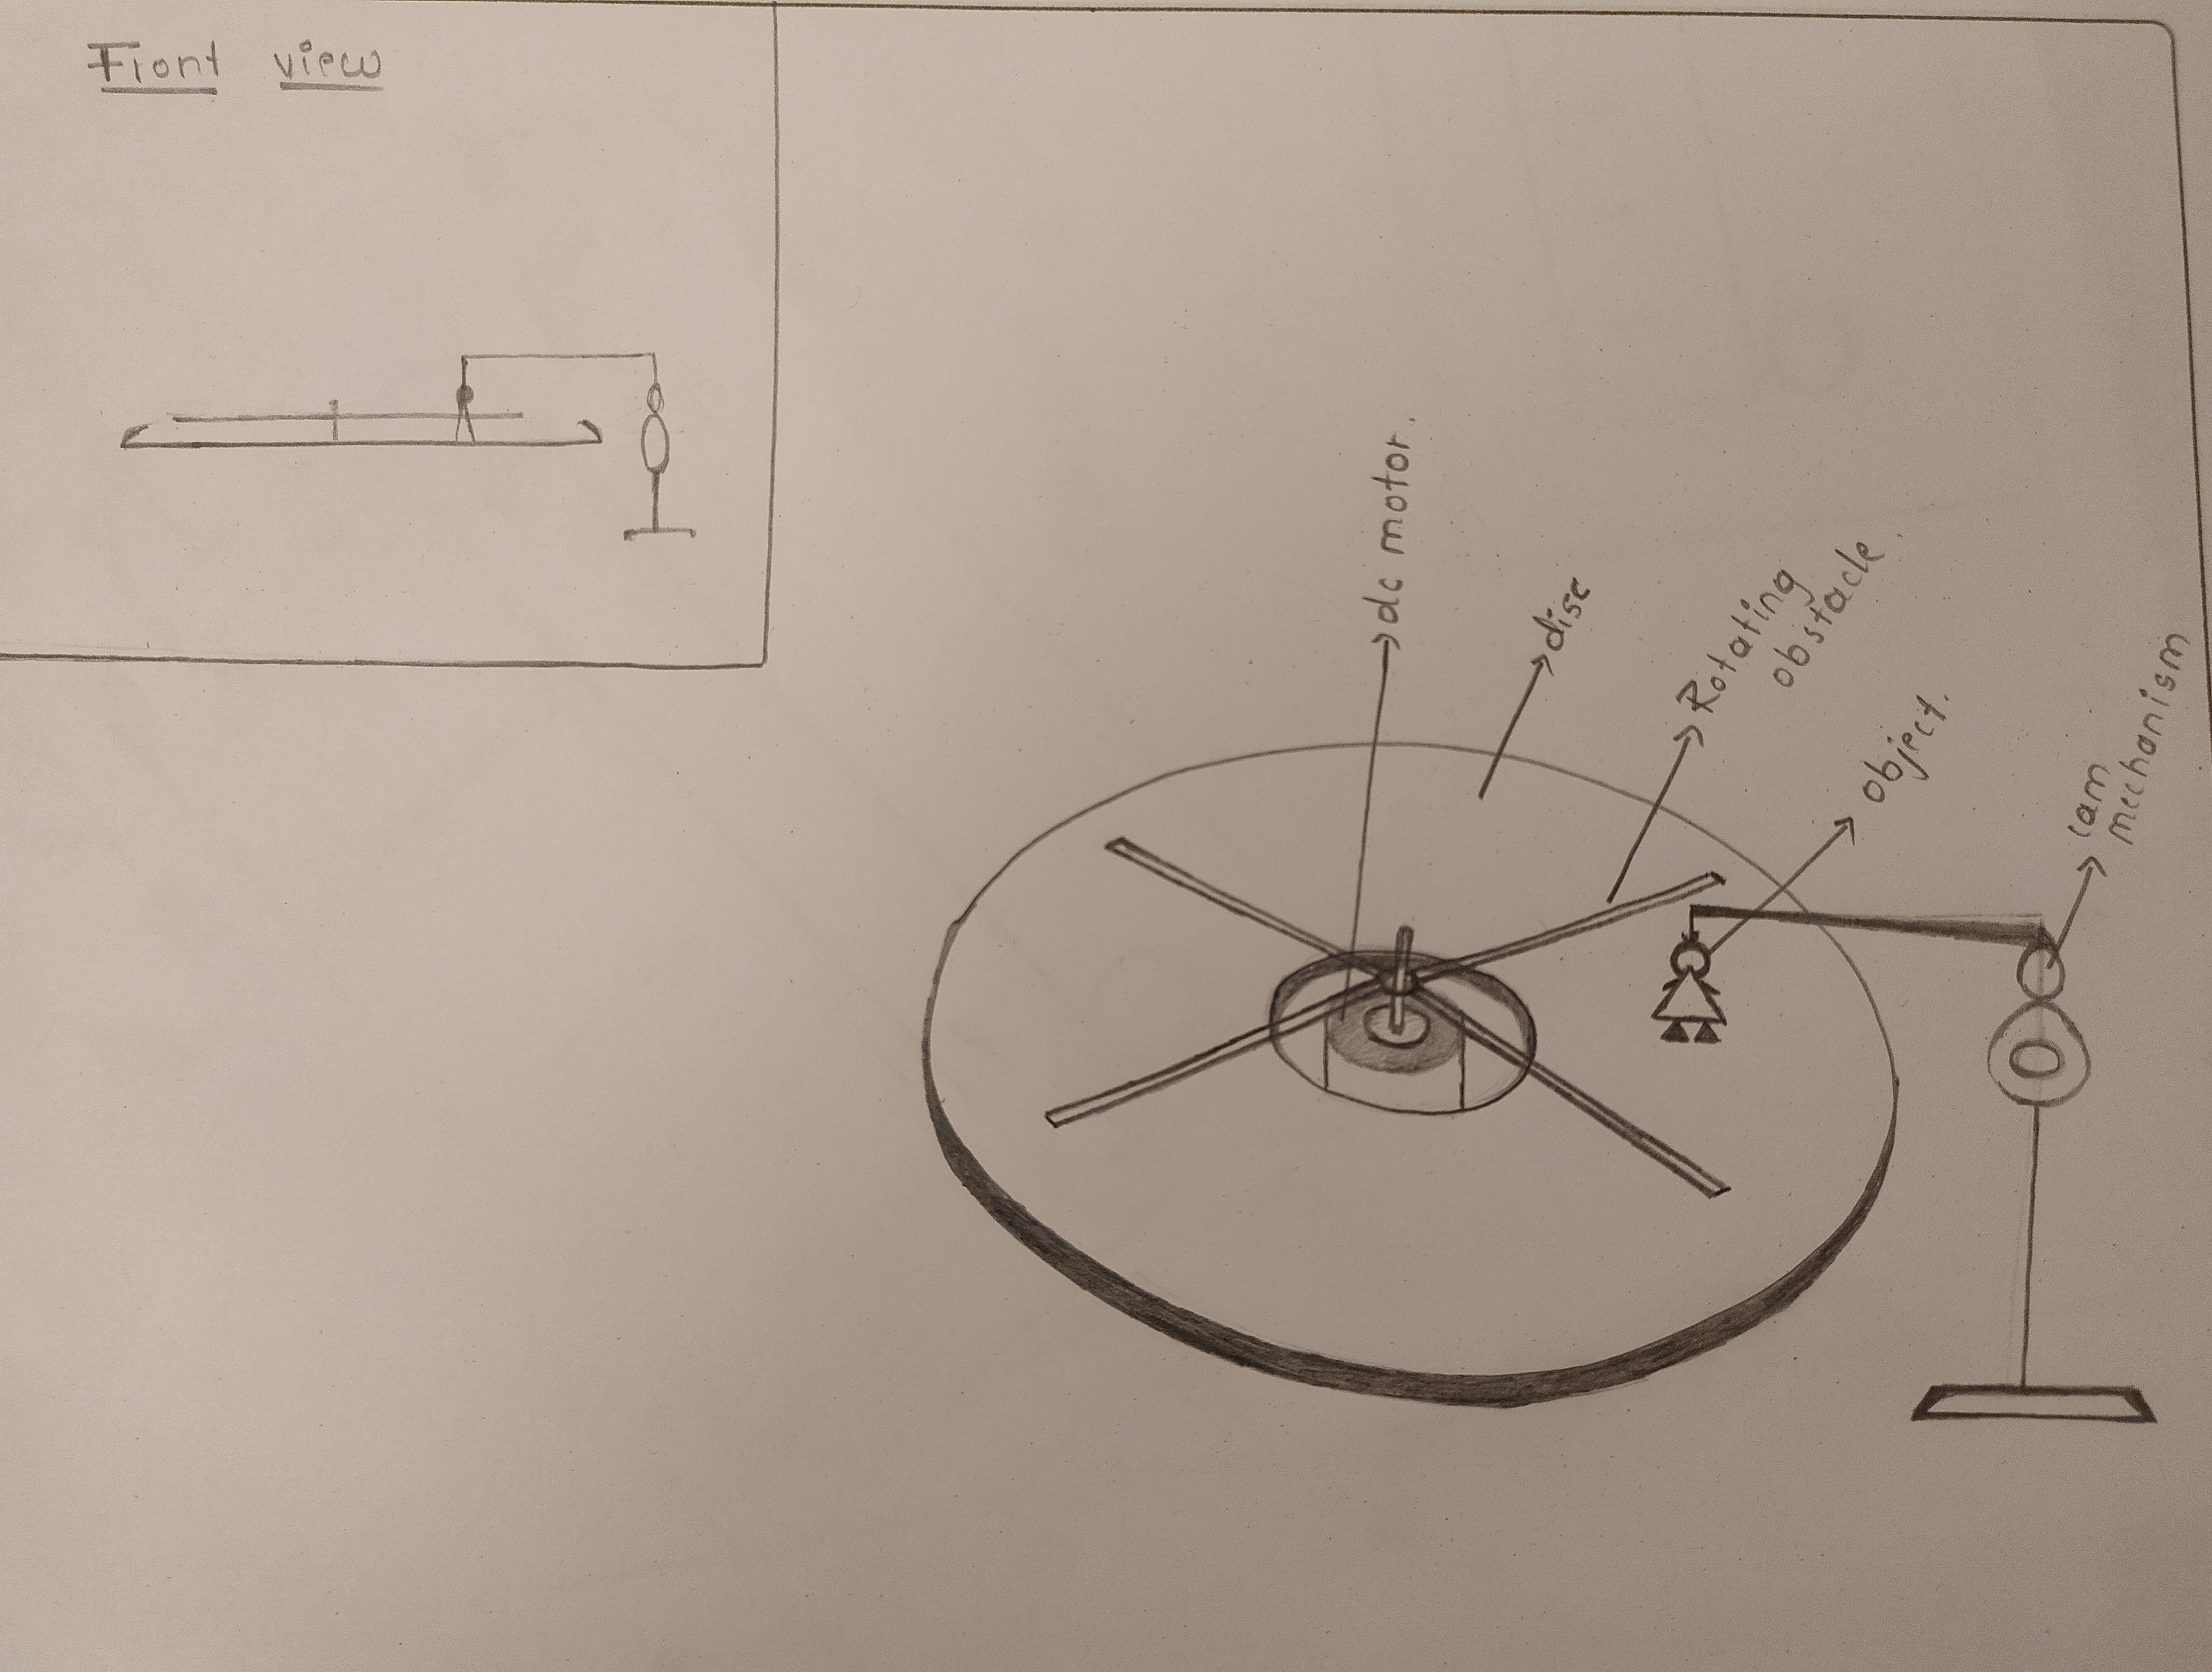 Front view
dc motor.
disc
Rotating
obstacle.
object.
cam
mechanism